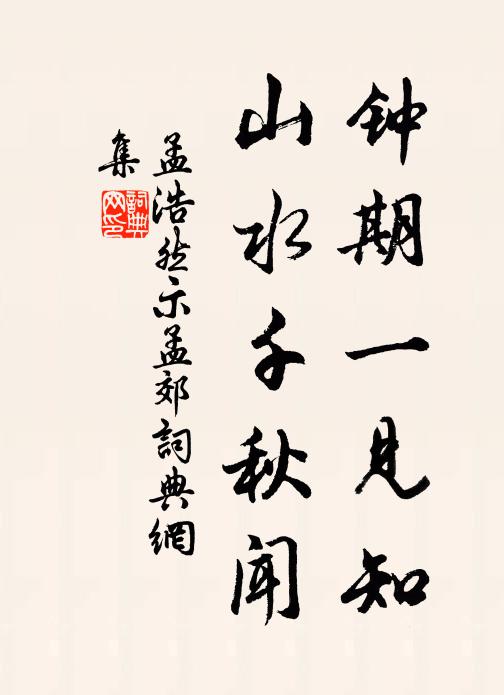 钟期一见知
山水千秋闻
孟浩然示孟郊詞典網
集
詞典网印